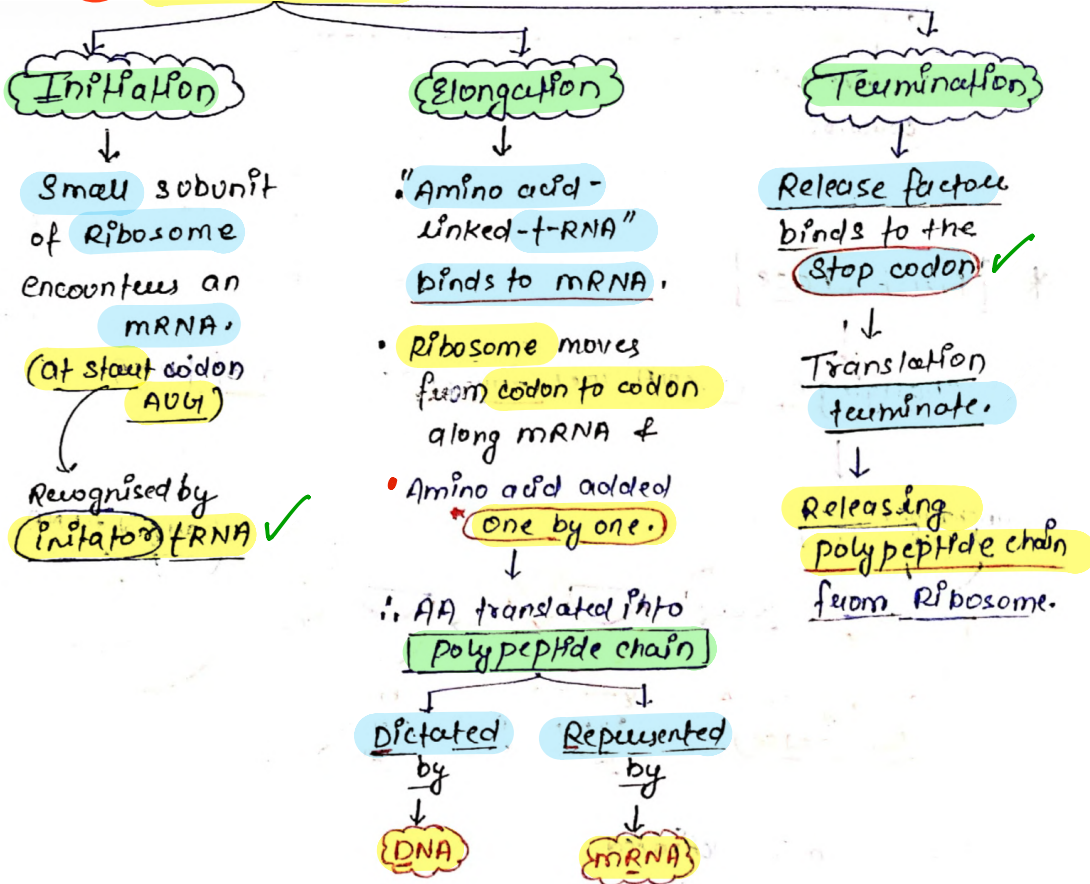 Initiation
Small subunit
of Ribosome
encounters an
mRNA.
(at start codon
AUG)
Recognised by
initator tRNA ✓
Elongation
• "Amino acid-
linked-t-RNA"
binds to mRNA.
• Ribosome moves
from codon to codon
along mRNA &
• Amino acid added
* one by one.
∴ AA translated into
polypeptide chain
Dictated
by
DNA
Represented
by
mRNA
Termination
Release factor
binds to the
Stop codon ✓
Translation
terminate.
Releasing
polypeptide chain
from Ribosome.